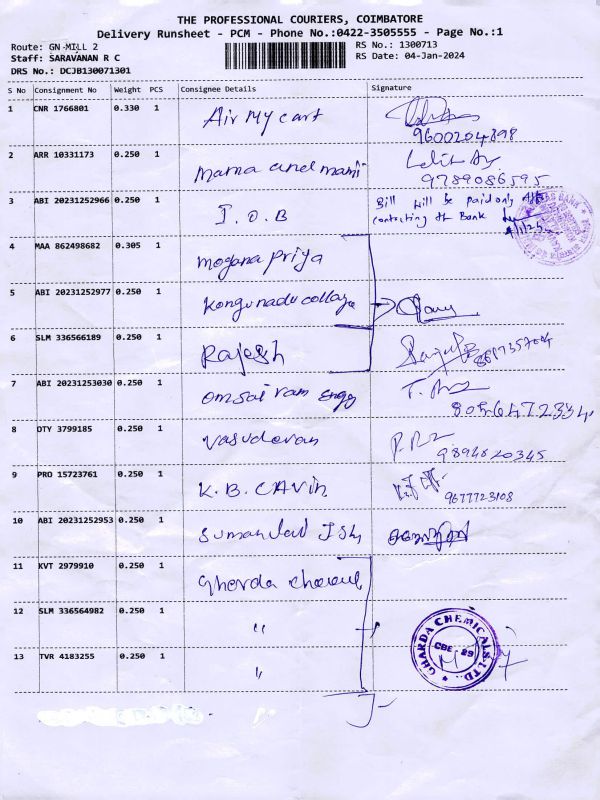 THE PROFESSIONAL COURIERS, COIMBATORE
Delivery Runsheet - PCM - Phone No.:0422-3505555 - Page No.:1
Route: GN-MILL 2
RS No.: 1300713
Staff: SARAVANAN R C
RS Date: 04-Jan-2024
DRS No.: DCJB130071301
S No Consignment No Weight PCS Consignee Details Signature
1 CNR 1766801 0.330 1 Air My cart
9600204898
2 ARR 10331173 0.250 1 mama and mami
9789086595
3 ABI 20231252966 0.250 1 I.O.B Bill will be paid only after
contacting the Bank
4 MAA 862498682 0.305 1 mogana priya
5 ABI 20231252977 0.250 1 Kongunadu collage
6 SLM 336566189 0.250 1 Rajesh
7 ABI 20231253030 0.250 1 omsai ram engg
8056472334
8 DTY 3799185 0.250 1 vasudevan
9894820345
9 PRO 15723761 0.250 1 K.B. CAVin
9677723108
10 ABI 20231252953 0.250 1
11 KVT 2979910 0.250 1 Gharda
12 SLM 336564982 0.250 1 "
13 TVR 4183255 0.250 1 "
GHARDA CHEMICALS LTD.
CBE - 29